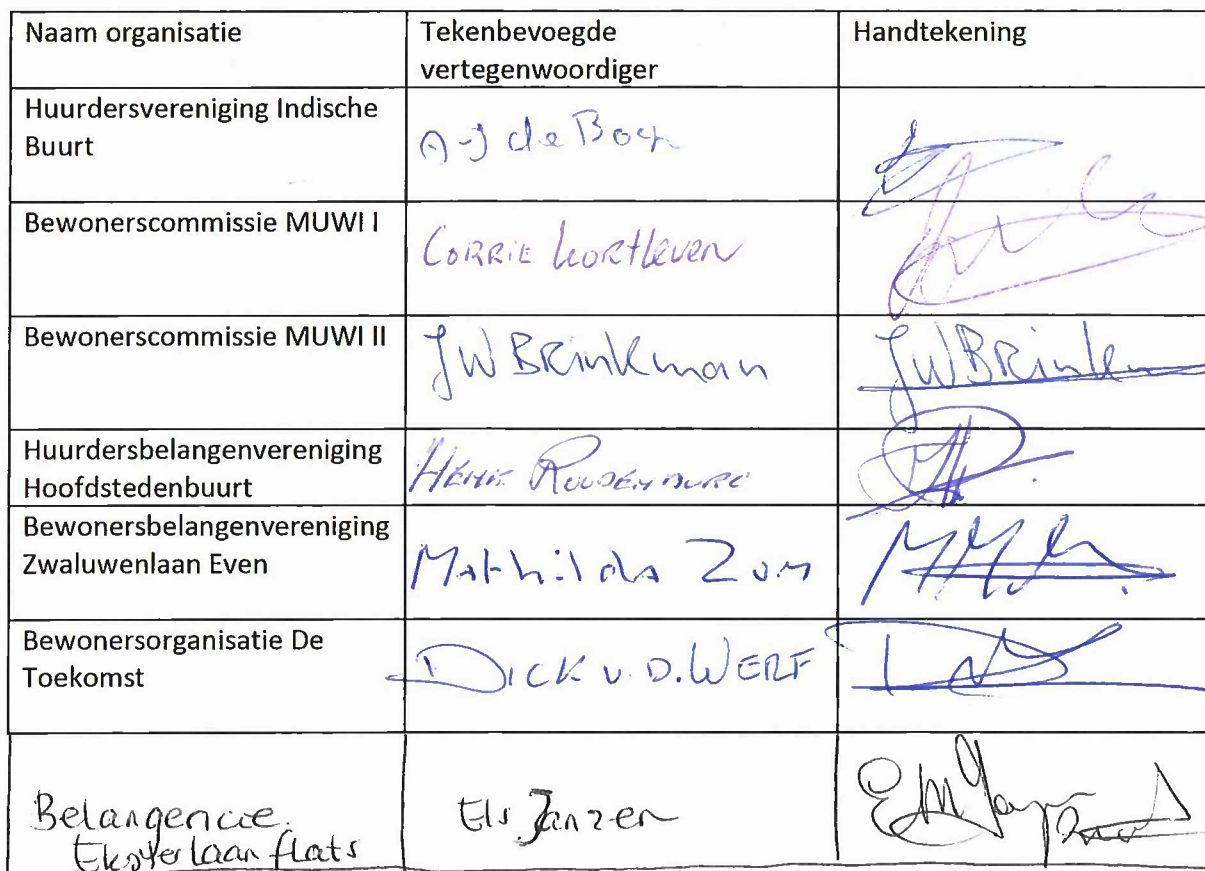 Naam organisatie
Tekenbevoegde
vertegenwoordiger
Handtekening
Huurdersvereniging Indische
Buurt
A-J de Boer
Bewonerscommissie MUWI I
CORRIE kortleven
Bewonerscommissie MUWI II
JW BRinkman
JWBRink
Huurdersbelangenvereniging
Hoofdstedenbuurt
HENK ROODENBURG
Bewonersbelangenvereniging
Zwaluwenlaan Even
Mathilda Zum
Bewonersorganisatie De
Toekomst
DICK v. D. WERF
Belangencie.
Eksterlaan flats
Els Janzen